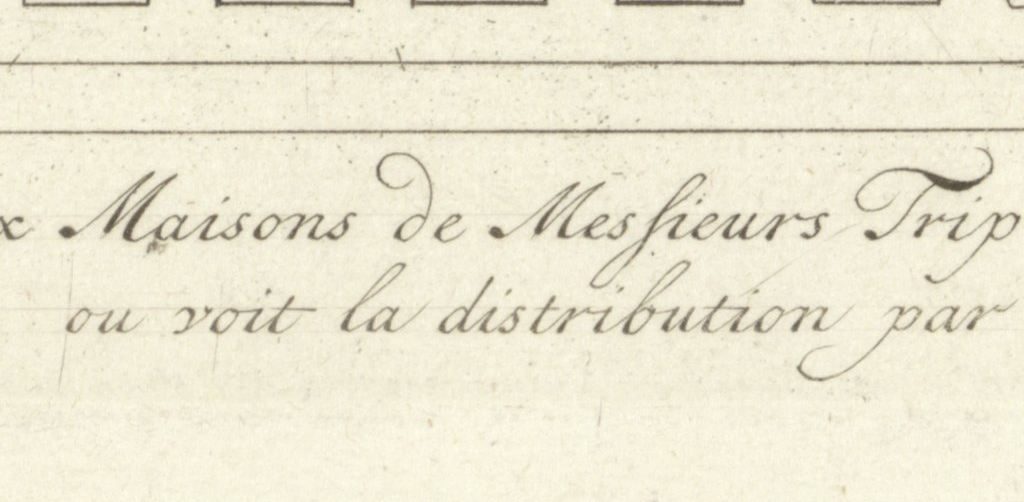 x Maisons de Mesſieurs Trip
ou voit la distribution par